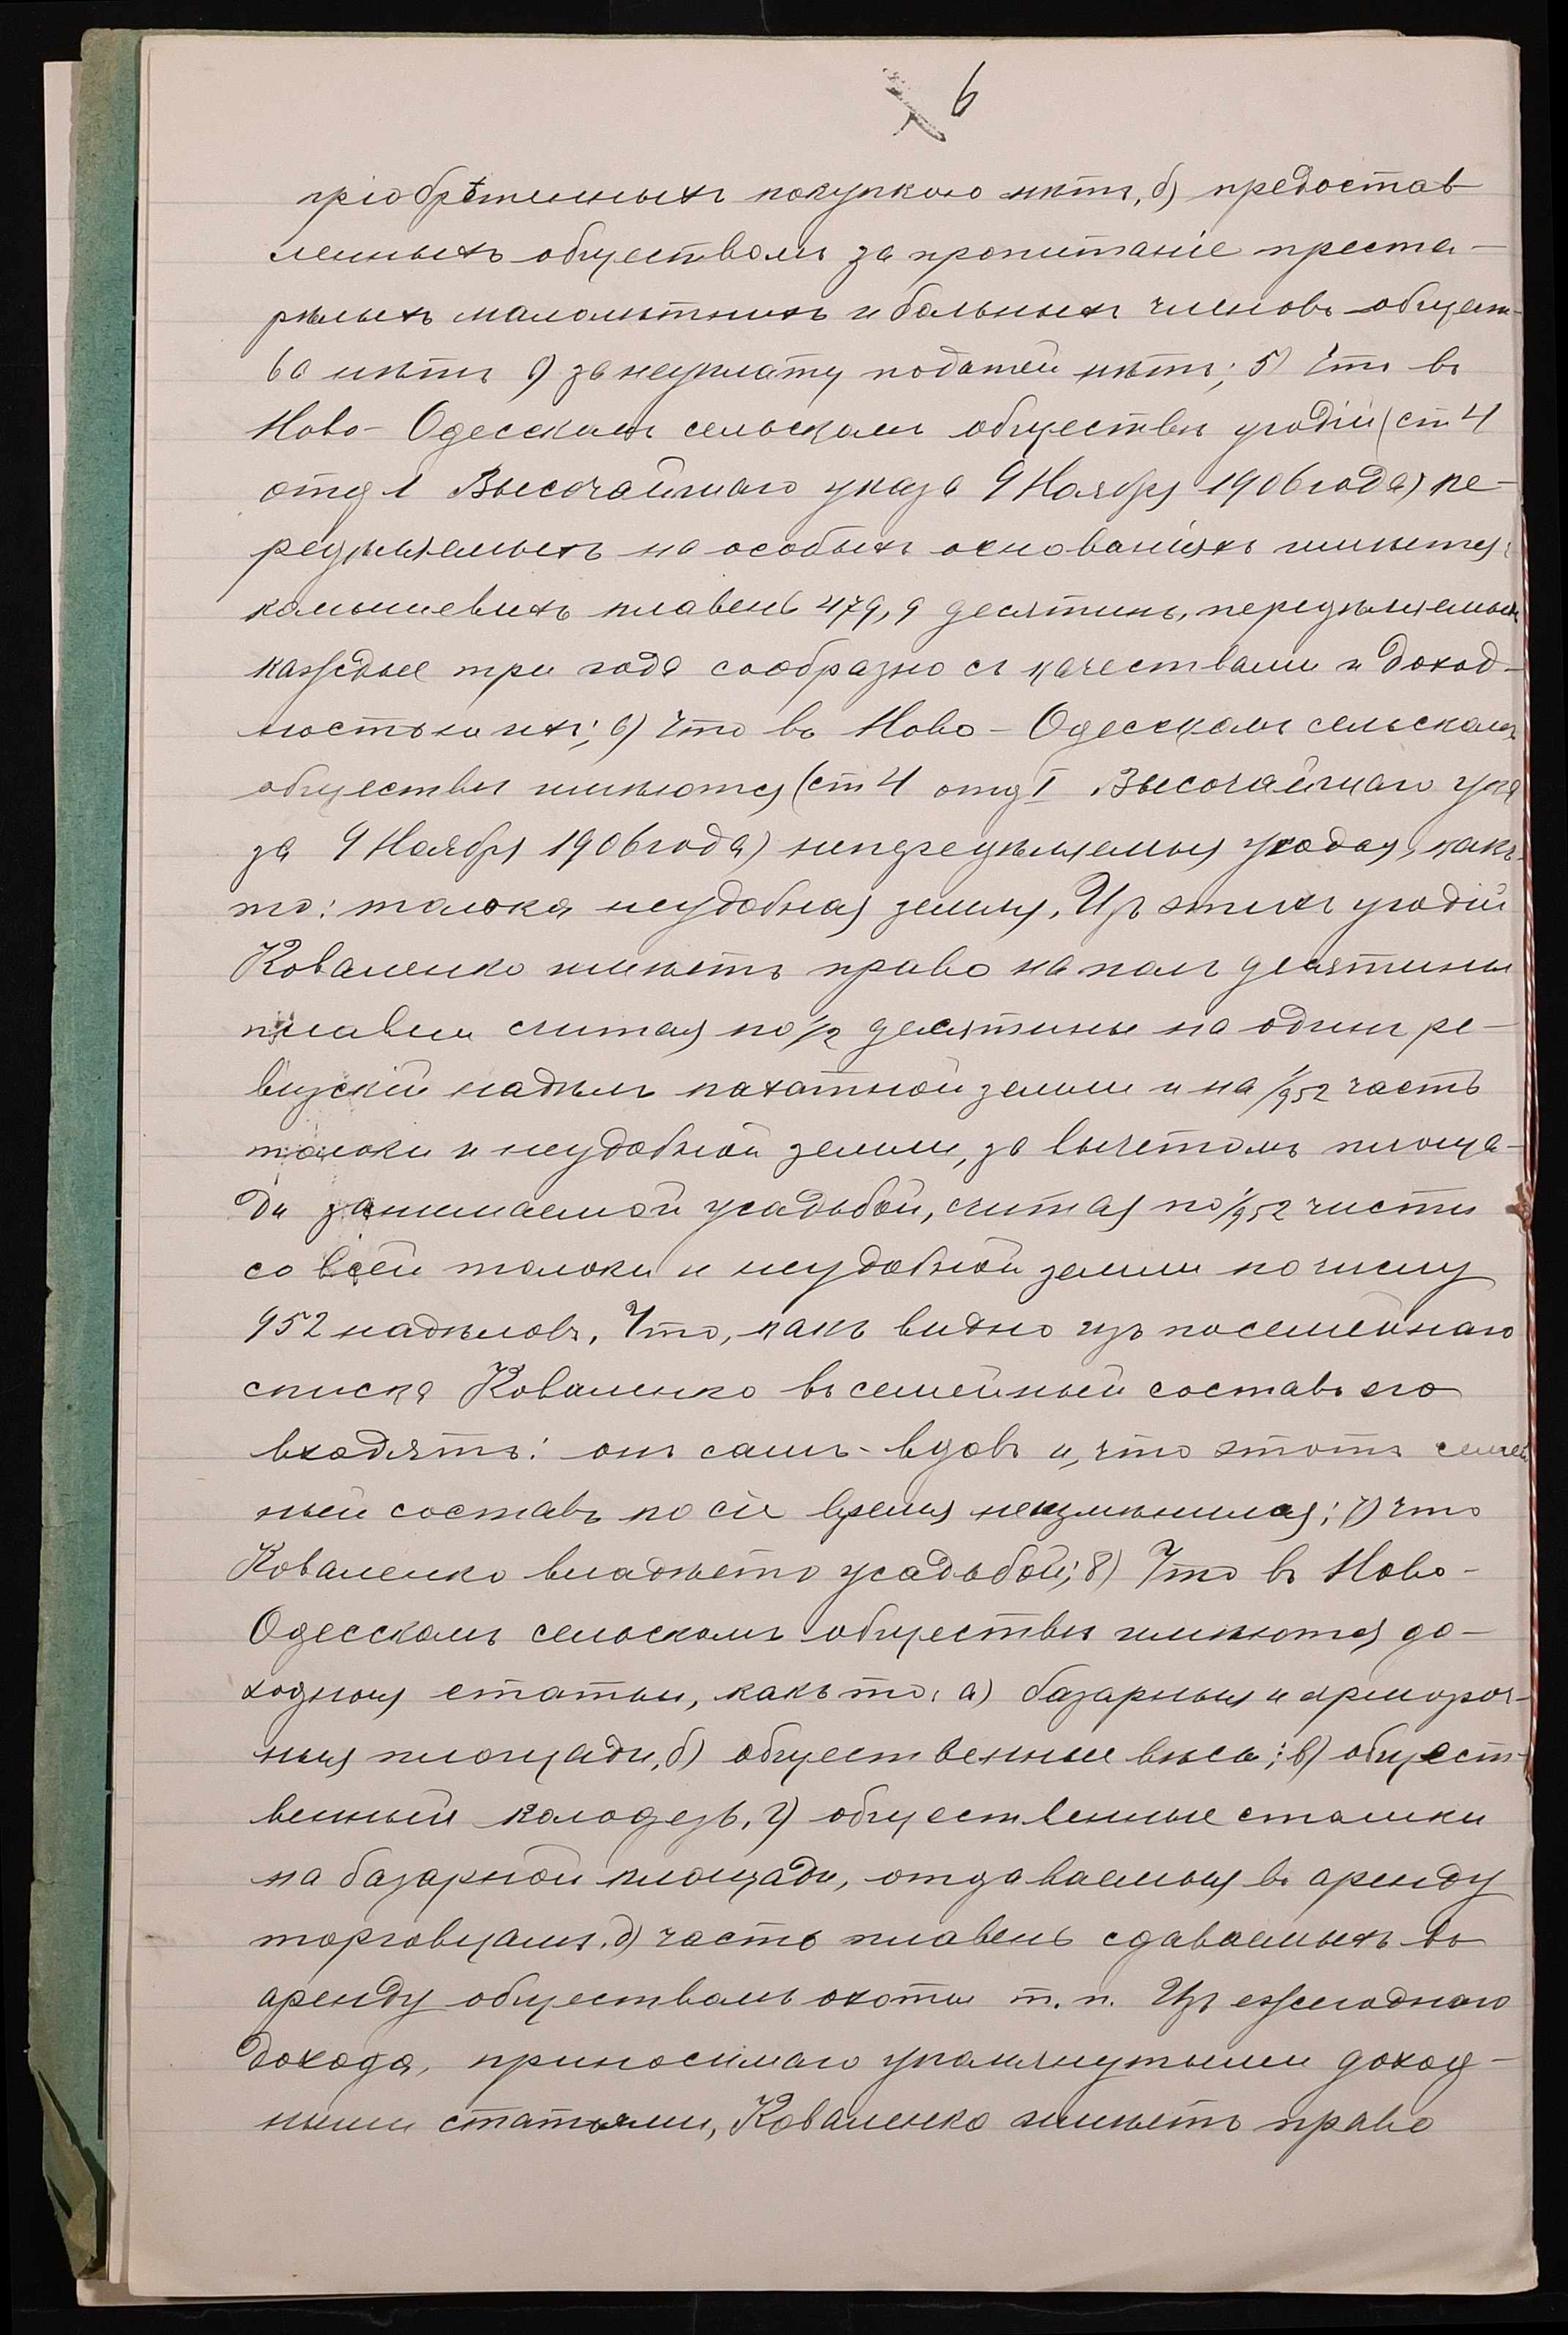 6
пріобрѣтенныхъ покупкою нѣтъ, б) предостав-
ленныхъ обществомъ за пропитаніе преста-
рѣлыхъ малолѣтнихъ и больныхъ членовъ общест-
ва нѣтъ в) за неуплату податей нѣтъ; 5) Что въ
Ново-Одесскомъ сельскомъ обществѣ угодій (ст 4
отд 1 Высочайшаго указа 9 Ноября 1906 года) пе-
редѣляемыхъ на особыхъ основаніяхъ имѣется:
камышевыхъ плавень 479,9 десятинъ, передѣляемыхъ
каждые три года сообразно съ качествами и доход-
ностью ихъ; 6) Что въ Ново-Одесскомъ сельскомъ
обществѣ имѣются (ст 4 отд I Высочайшаго ука
за 9 Ноября 1906 года) непередѣляемыя угодья, какъ
то: толока неудобная земля. Изъ этихъ угодій
Коваленко имѣетъ право на пол десятины
плавни считая по 1/2 десятины на одинъ ре-
визскій надѣлъ пахатной земли и на 1/952 часть
толоки и неудобной земли, за вычетомъ площа-
ди занимаемой усадьбой, считая по 1/952 части
со всей толоки и неудобной земли по числу
952 надѣловъ. Что, какъ видно изъ посемейнаго
списка Коваленко въ семейный составъ его
входятъ: онъ самъ - вдовъ и, что этотъ семей
ный составъ по сіе время неизмѣнился; 7) что
Коваленко владѣетъ усадьбой; 8) Что въ Ново-
Одесскомъ сельскомъ обществѣ имѣются до-
ходныя статьи, какъ то: а) базарныя и ярмороч-
ныя площади, б) общественные вѣсы; в) общест-
венный колодезь, г) общественные столики
на базарной площади, отдаваемыя въ аренду
торговцамъ. д) часть плавень сдаваемыхъ въ
аренду обществамъ охоты т. п. Изъ ежегоднаго
дохода, приносимаго упомянутыми доход-
ными статьями, Коваленко имѣетъ право